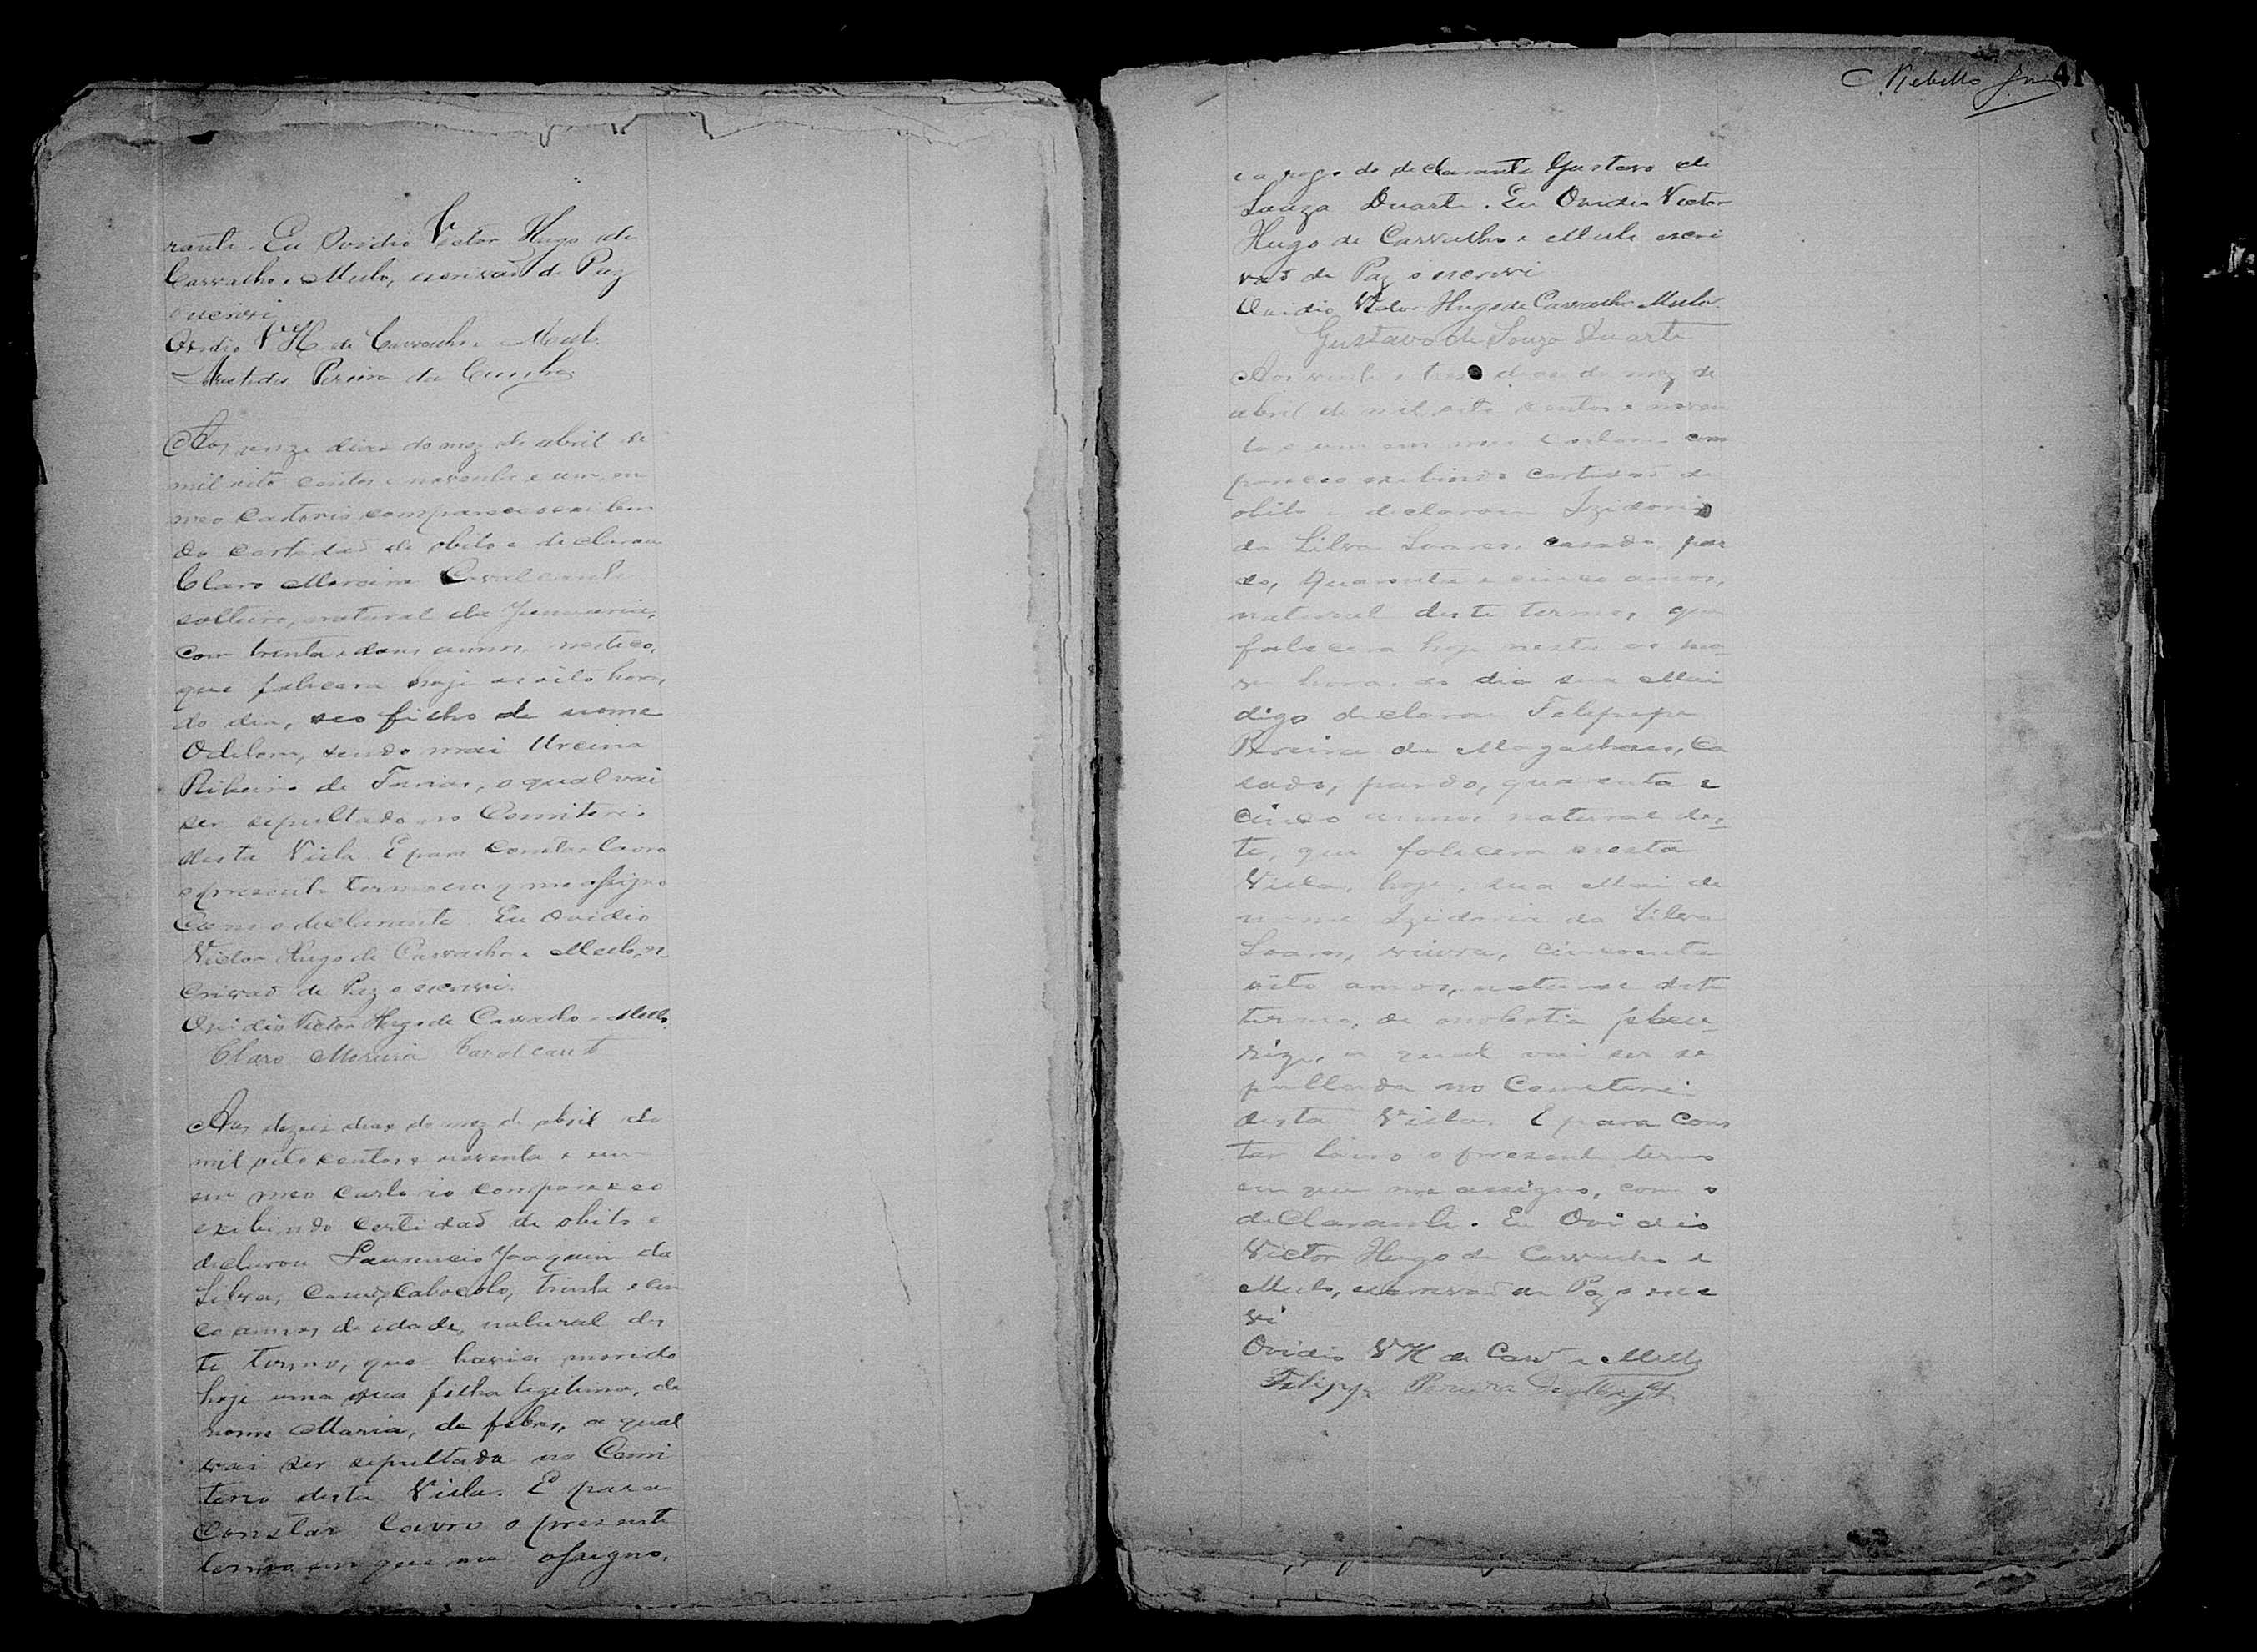 rante. Eu Ovidio Victor Hugo de
Carvalho e Mello, escrivaõ de Paz
o escrevi
Ovidio V H. de Carvalho e Mello.
Aristides Pereira da Cunha
Aos onze dias do mez de abril de
mil oito centos e noventa e um, em
meo cartorio compareceo exibin
do certidaõ de obito e declarou
Claro Moreira Cavalcanti
solteiro, natural da Januaria,
com trinta e dous annos, mestiço,
que falecera hoje as oito horas
do dia, seo filho de nome
Odilom, sendo mai Urcina
Ribeiro de Farias, o qual vai
ser sepultado no Comiterio
desta Villa. E para constar lavro
o presente termo em q me assigno
com o declarante. Eu Ovidio
Victor Hugo de Carvalho e Mello, es
crivaõ de Paz o escrevi.
Ovidio Victor Hugo de Carvalho e Mello.
Claro Moreira Cavalcant
Aos dezseis dias do mez de abril de
mil oito centos e noventa e um
em meo cartorio compareceo
exibindo certidaõ de obito e
declarou Laurencio Joaquim da
Silva, casado, Cabocolo, trinta e cin
co annos de idade, natural des
te termo, que havia morrido
hoje uma sua filha legitima, de
nome Maria, de febres, a qual
vai ser sepultada no Comi
terio desta Villa. E para
constar lavro o presente
termo em que me assigno,
Rebello 41
e a rogo do declarante Gustavo de
Souza Duarte. Eu Ovidio Victor
Hugo de Carvalho e Mello escri
vaõ de Paz o escrevi
Ovidio Victor Hugo de Carvalho Mello.
Gustavo de Souza Duarte
Aos vinte e tres dias do mez de
abril de mil oito centos e noven
ta e um em meo Cartorio com
pareceo exibindo certidaõ de
obito e declarou Izidorio
da Silva Soares, casado, par
do, quarenta e cinco annos,
natural deste termo, que
falecera hoje nesta as no
ve horas do dia sua Mai
digo declarou Felippe
Pereira de Magalhaes, Ca
sado, pardo, quarenta e
cinco annos natural des
te, que falecera nesta
Villa, hoje, sua Mai de
nome Izidoria da Silva
Soares, viuva, cincoenta
oito annos, natural deste
termo, de molestia pleu
riz, a qual vai ser se
pultada no Cemeterio
desta Villa. E para Cons
tar lavro o presente termo
em que me assigno, com o
declarante. Eu Ovidio
Victor Hugo de Carvalho e
Mello, escrivaõ de Paz o escre
vi
Ovidio V H de Carv e Mello
Felippe Pereira de Magˢ